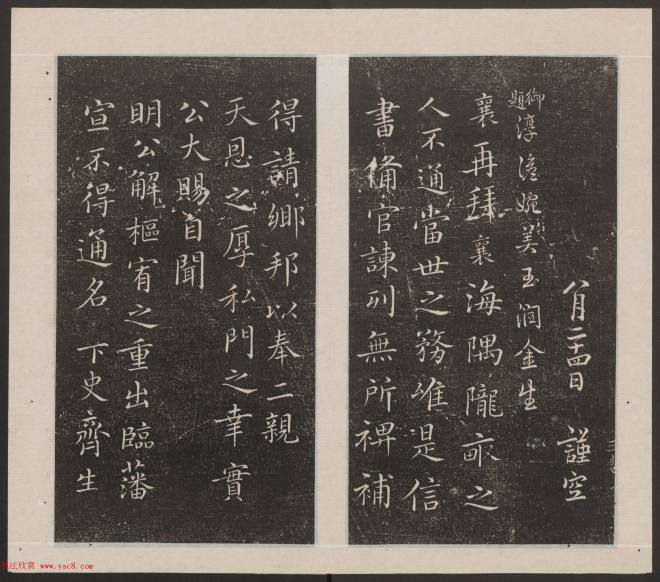 八月二十四日 謹空
御題 淳澹婉美玉潤金生
襄再拜襄海隅隴畝之
人不通當世之務唯是信
書備官諫列無所裨補
得請鄉邦以奉二親
天恩之厚私門之幸實
公大賜自聞
明公解樞宥之重出臨藩
宣不得通名下史齋生
书法欣赏 www.yac8.com